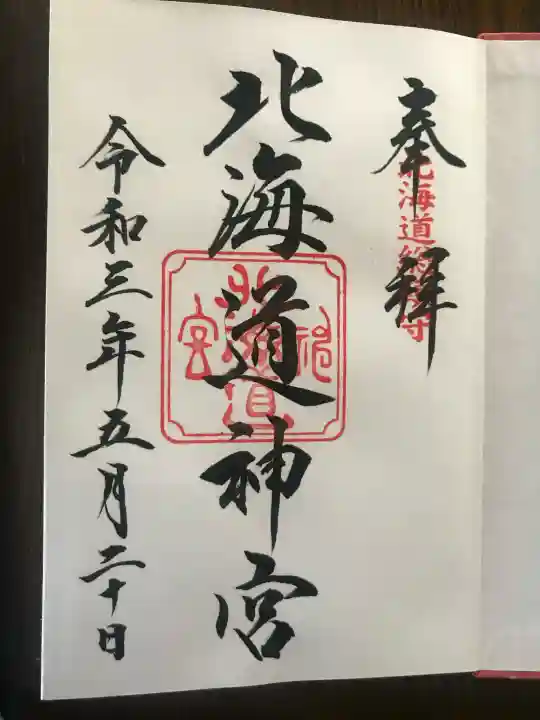 奉拝
北海道総鎮守
北海道神宮
令和三年五月二十日